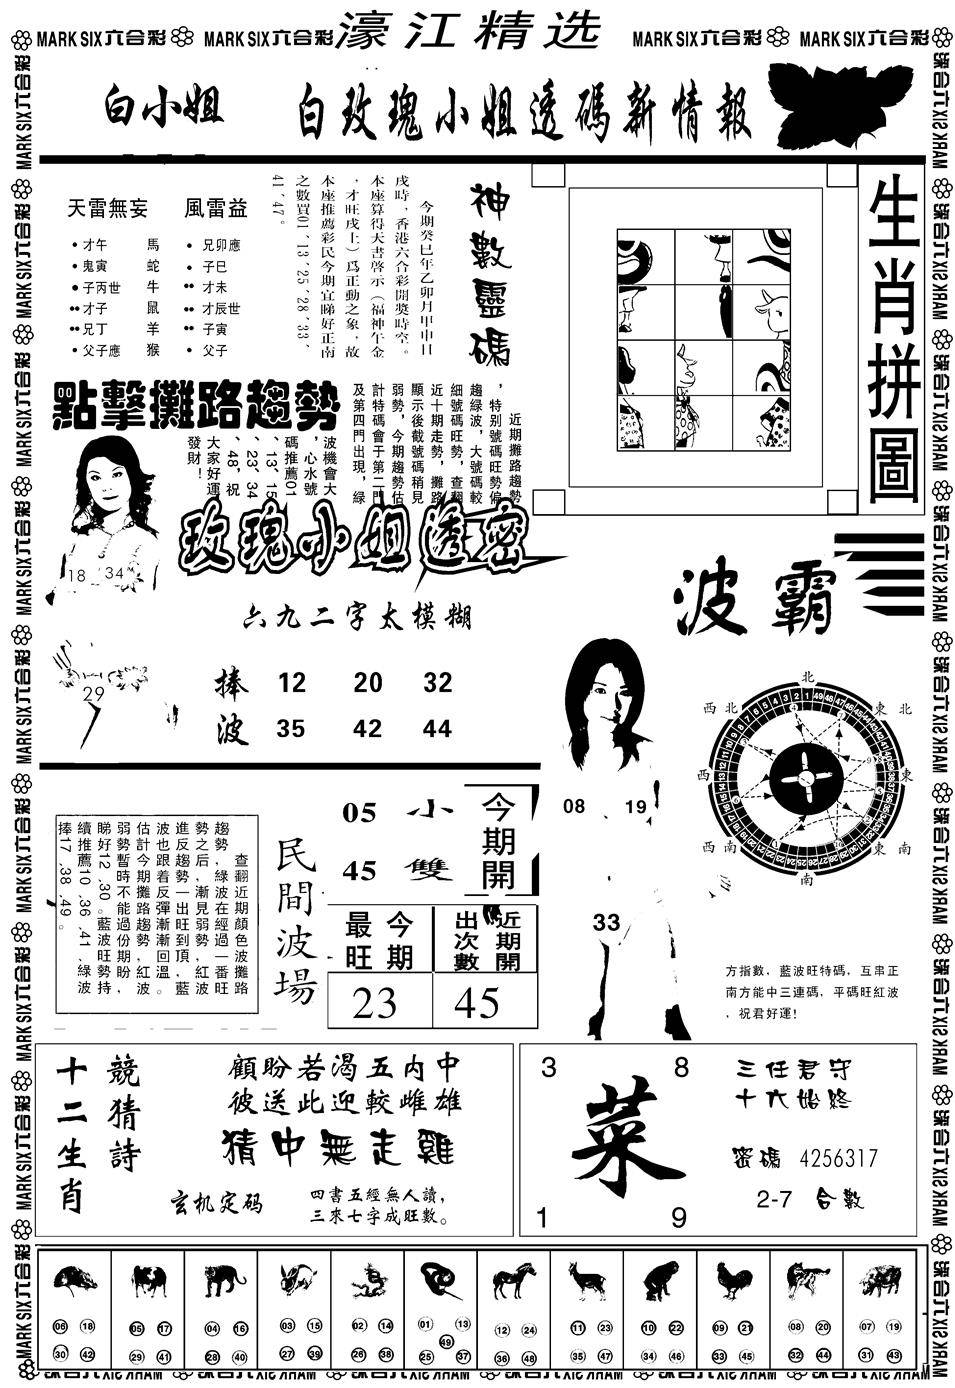 MARK SIX六合彩 MARK SIX六合彩 濠江精选 MARK SIX六合彩 MARK SIX六合彩
白小姐 白玫瑰小姐透碼新情報
天雷無妄 風雷益
•才午 馬 •兄卯應
•鬼寅 蛇 •子巳
●子丙世 牛 ••才未
••才子 鼠 ••才辰世
••兄丁 羊 ••子寅
•父子應 猴 •父子
神數靈碼
今期癸巳年乙卯月甲申日
戌時，香港六合彩開獎時空。
本座算得天書啓示（福神午金
，才旺戌上）爲正動之象，故
本座推薦彩民今期宜睇好正南
之數買01、13、25、28、33、
41、47。
生肖拼圖
點擊攤路趨勢
近期攤路趨勢
，特別號碼旺勢偏
趨綠波，大號碼較
細號碼旺勢，查翻
近十期走勢，攤路
顯示後截號碼稍見
弱勢，今期趨勢估
計特碼會于第二門
及第四門出現，綠
波機會大
，心水號
碼推薦01
、13、15
、23、34
、48，祝
大家好運
發財！
18 34
29
玫瑰小姐透密
六九二字太模糊
捧 12 20 32
波 35 42 44
波霸
08 19
33
北
東北
東
東南
南
西南
西
西北
方指數，藍波旺特碼，互串正
南方能中三連碼，平碼旺紅波
、祝君好運！
查翻近期顏色波攤路
趨勢，綠波在經過一番旺
勢之后，漸見弱勢，紅波
進反趨勢一出旺到頂，藍
波也跟着反彈漸漸回溫。
估計今期攤路趨勢紅波
弱勢暫時不能過份期盼，
睇好12、30。藍波旺勢持
續推薦10、36、41、綠波
捧17、38、49。
民間波場
05 小
45 雙
今期開
今期最旺
近期開出次數
23 45
競猜詩
十二生肖
顧盼若渴五内中
彼送此迎較雌雄
猜中無走雞
玄机定码
四書五經無人讀，
三來七字成旺數。
3 8
菜
1 9
三任君守
十六始終
密碼 4256317
2-7 合數
06 18 30 42
05 17 29 41
04 16 28 40
03 15 27 39
02 14 26 38
01 13 49 25 37
12 24 36 48
11 23 35 47
10 22 34 46
09 21 33 45
08 20 32 44
07 19 31 43